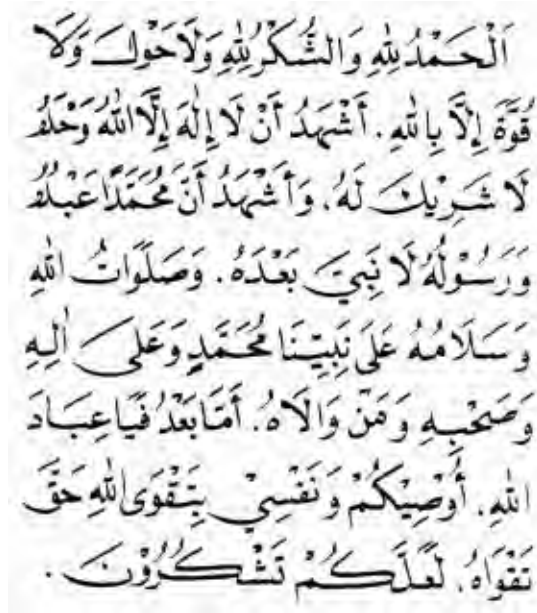 اَلْحَمْدُ لِلّٰهِ وَالشُّكْرُ لِلّٰهِ وَلَا حَوْلَ وَلَا
قُوَّةَ إِلَّا بِاللّٰهِ. أَشْهَدُ أَنْ لَا إِلٰهَ إِلَّا اللّٰهُ وَحْدَهُ
لَا شَرِيْكَ لَهُ، وَأَشْهَدُ أَنَّ مُحَمَّدًا عَبْدُهُ
وَرَسُوْلُهُ لَا نَبِيَّ بَعْدَهُ. وَصَلَوَاتُ اللّٰهِ
وَسَلَامُهُ عَلَى نَبِيِّنَا مُحَمَّدٍ وَعَلَى اٰلِهِ
وَصَحْبِهِ وَمَنْ وَالَاهُ. أَمَّا بَعْدُ فَيَا عِبَادَ
اللّٰهِ. أُوْصِيْكُمْ وَنَفْسِيْ بِتَقْوَى اللّٰهِ حَقَّ
تَقْوَاهُ. لَعَلَّكُمْ تَشْكُرُوْنَ.